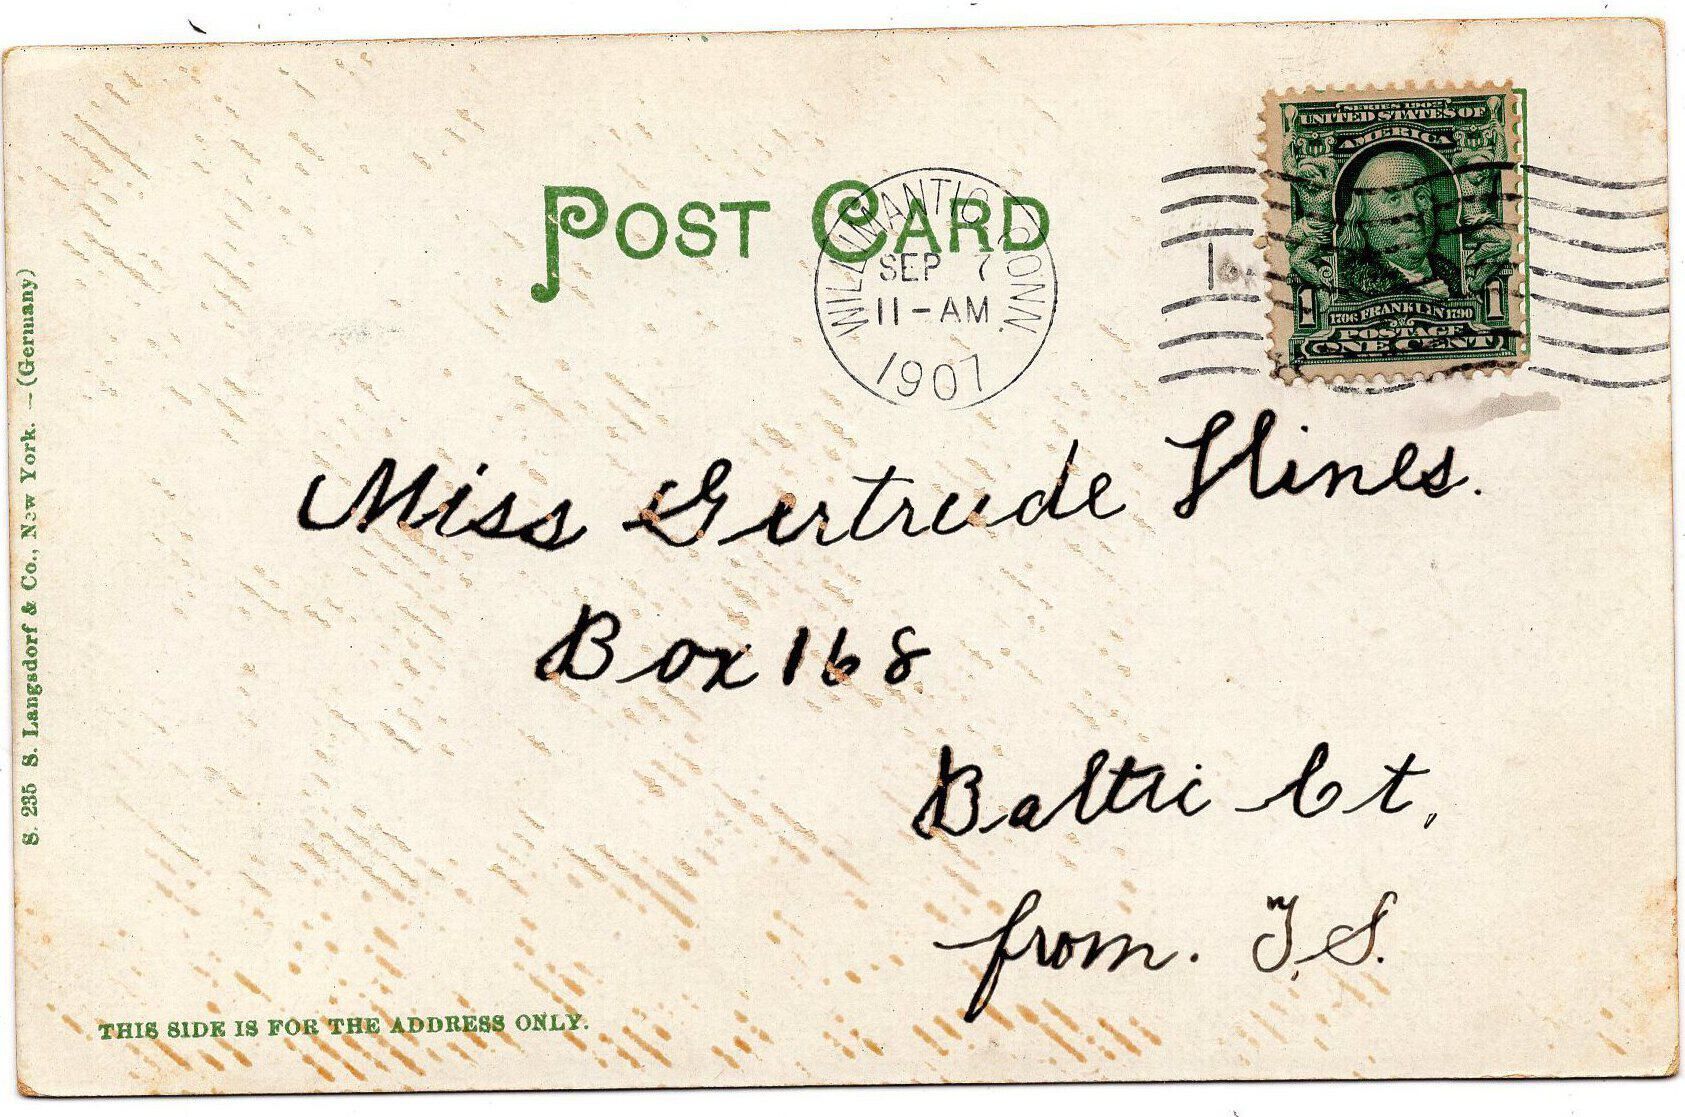 POST CARD
WILLIMANTIC CONN.
SEP 7
11-AM
1907
SERIES 1902
UNITED STATES OF
AMERICA
1 1
1706 FRANKLIN 1790
POSTAGE
ONE CENT
Miss Gertrude Hines.
Box 168
Baltic Ct,
from. T.S.
S. 235 S. Langsdorf & Co., New York. – (Germany)
THIS SIDE IS FOR THE ADDRESS ONLY.